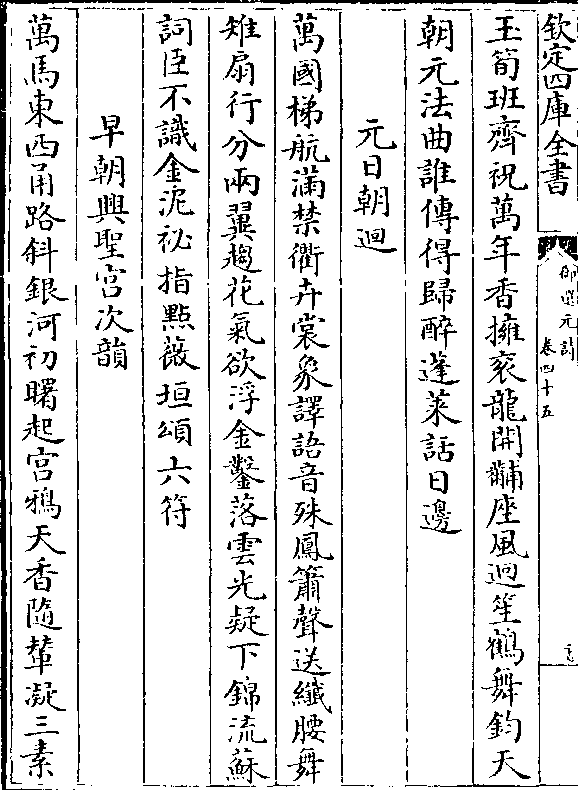 欽定四庫全書
御選元詩
卷四十五
玉筍班齊祝萬年香擁衮龍開黼座風迴笙鶴舞鈞天
朝元法曲誰傳得歸醉蓬萊話日邊
元日朝迴
萬國梯航滿禁衢卉裳象譯語音殊鳳簫聲送纖腰舞
雉扇行分兩翼趨花氣欲浮金鑿落雲光凝下錦流蘇
詞臣不識金泥祕指點薇垣頌六符
早朝興聖宫次韻
萬馬東西甬路斜銀河初曙起宫鴉天香隨輦凝三素